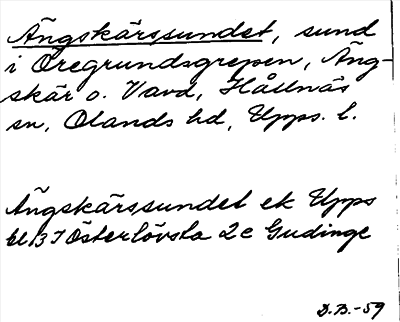 Ängskärssundet, sund
i Öregrundsgrepen, Äng-
skär o. Vavd, Hållnäs
sn, Olands hd, Upps. l.
Ängskärssundet ek Upps
bl 13 I Österlövsta 2 e Gudinge
D.B.-59